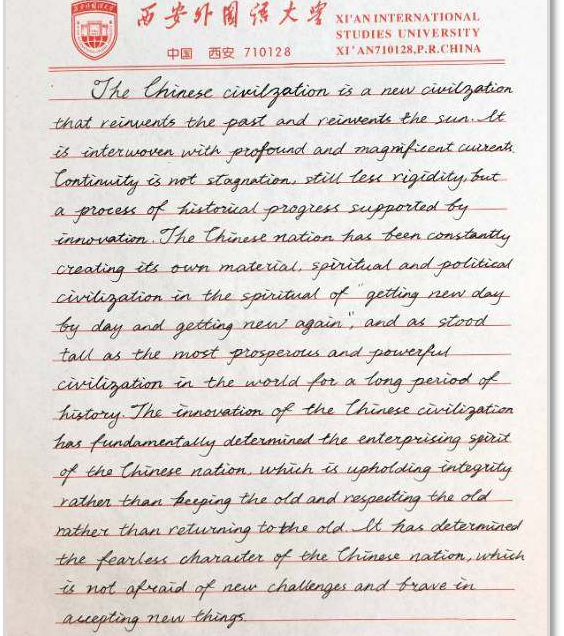 西安外国语大学
XI'AN INTERNATIONAL
STUDIES UNIVERSITY
中国 西安 710128
XI'AN710128,P.R.CHINA
The Chinese civilzation is a new civilzation
that reinvents the past and reinvents the sun. It
is interwoven with profound and magnificent currents.
Continuity is not stagnation, still less rigidity, but
a process of historical progress supported by
innovation. The Chinese nation has been constantly
creating its own material, spiritual and political
civilization in the spiritual of "getting new day
by day and getting new again", and as stood
tall as the most prosperous and powerful
civilization in the world for a long period of
history. The innovation of the Chinese civilization
has fundamentally determined the enterprising spirit
of the Chinese nation, which is upholding integrity
rather than keeping the old and respecting the old
rather than returning to the old. It has determined
the fearless character of the Chinese nation, which
is not afraid of new challenges and brave in
accepting new things.